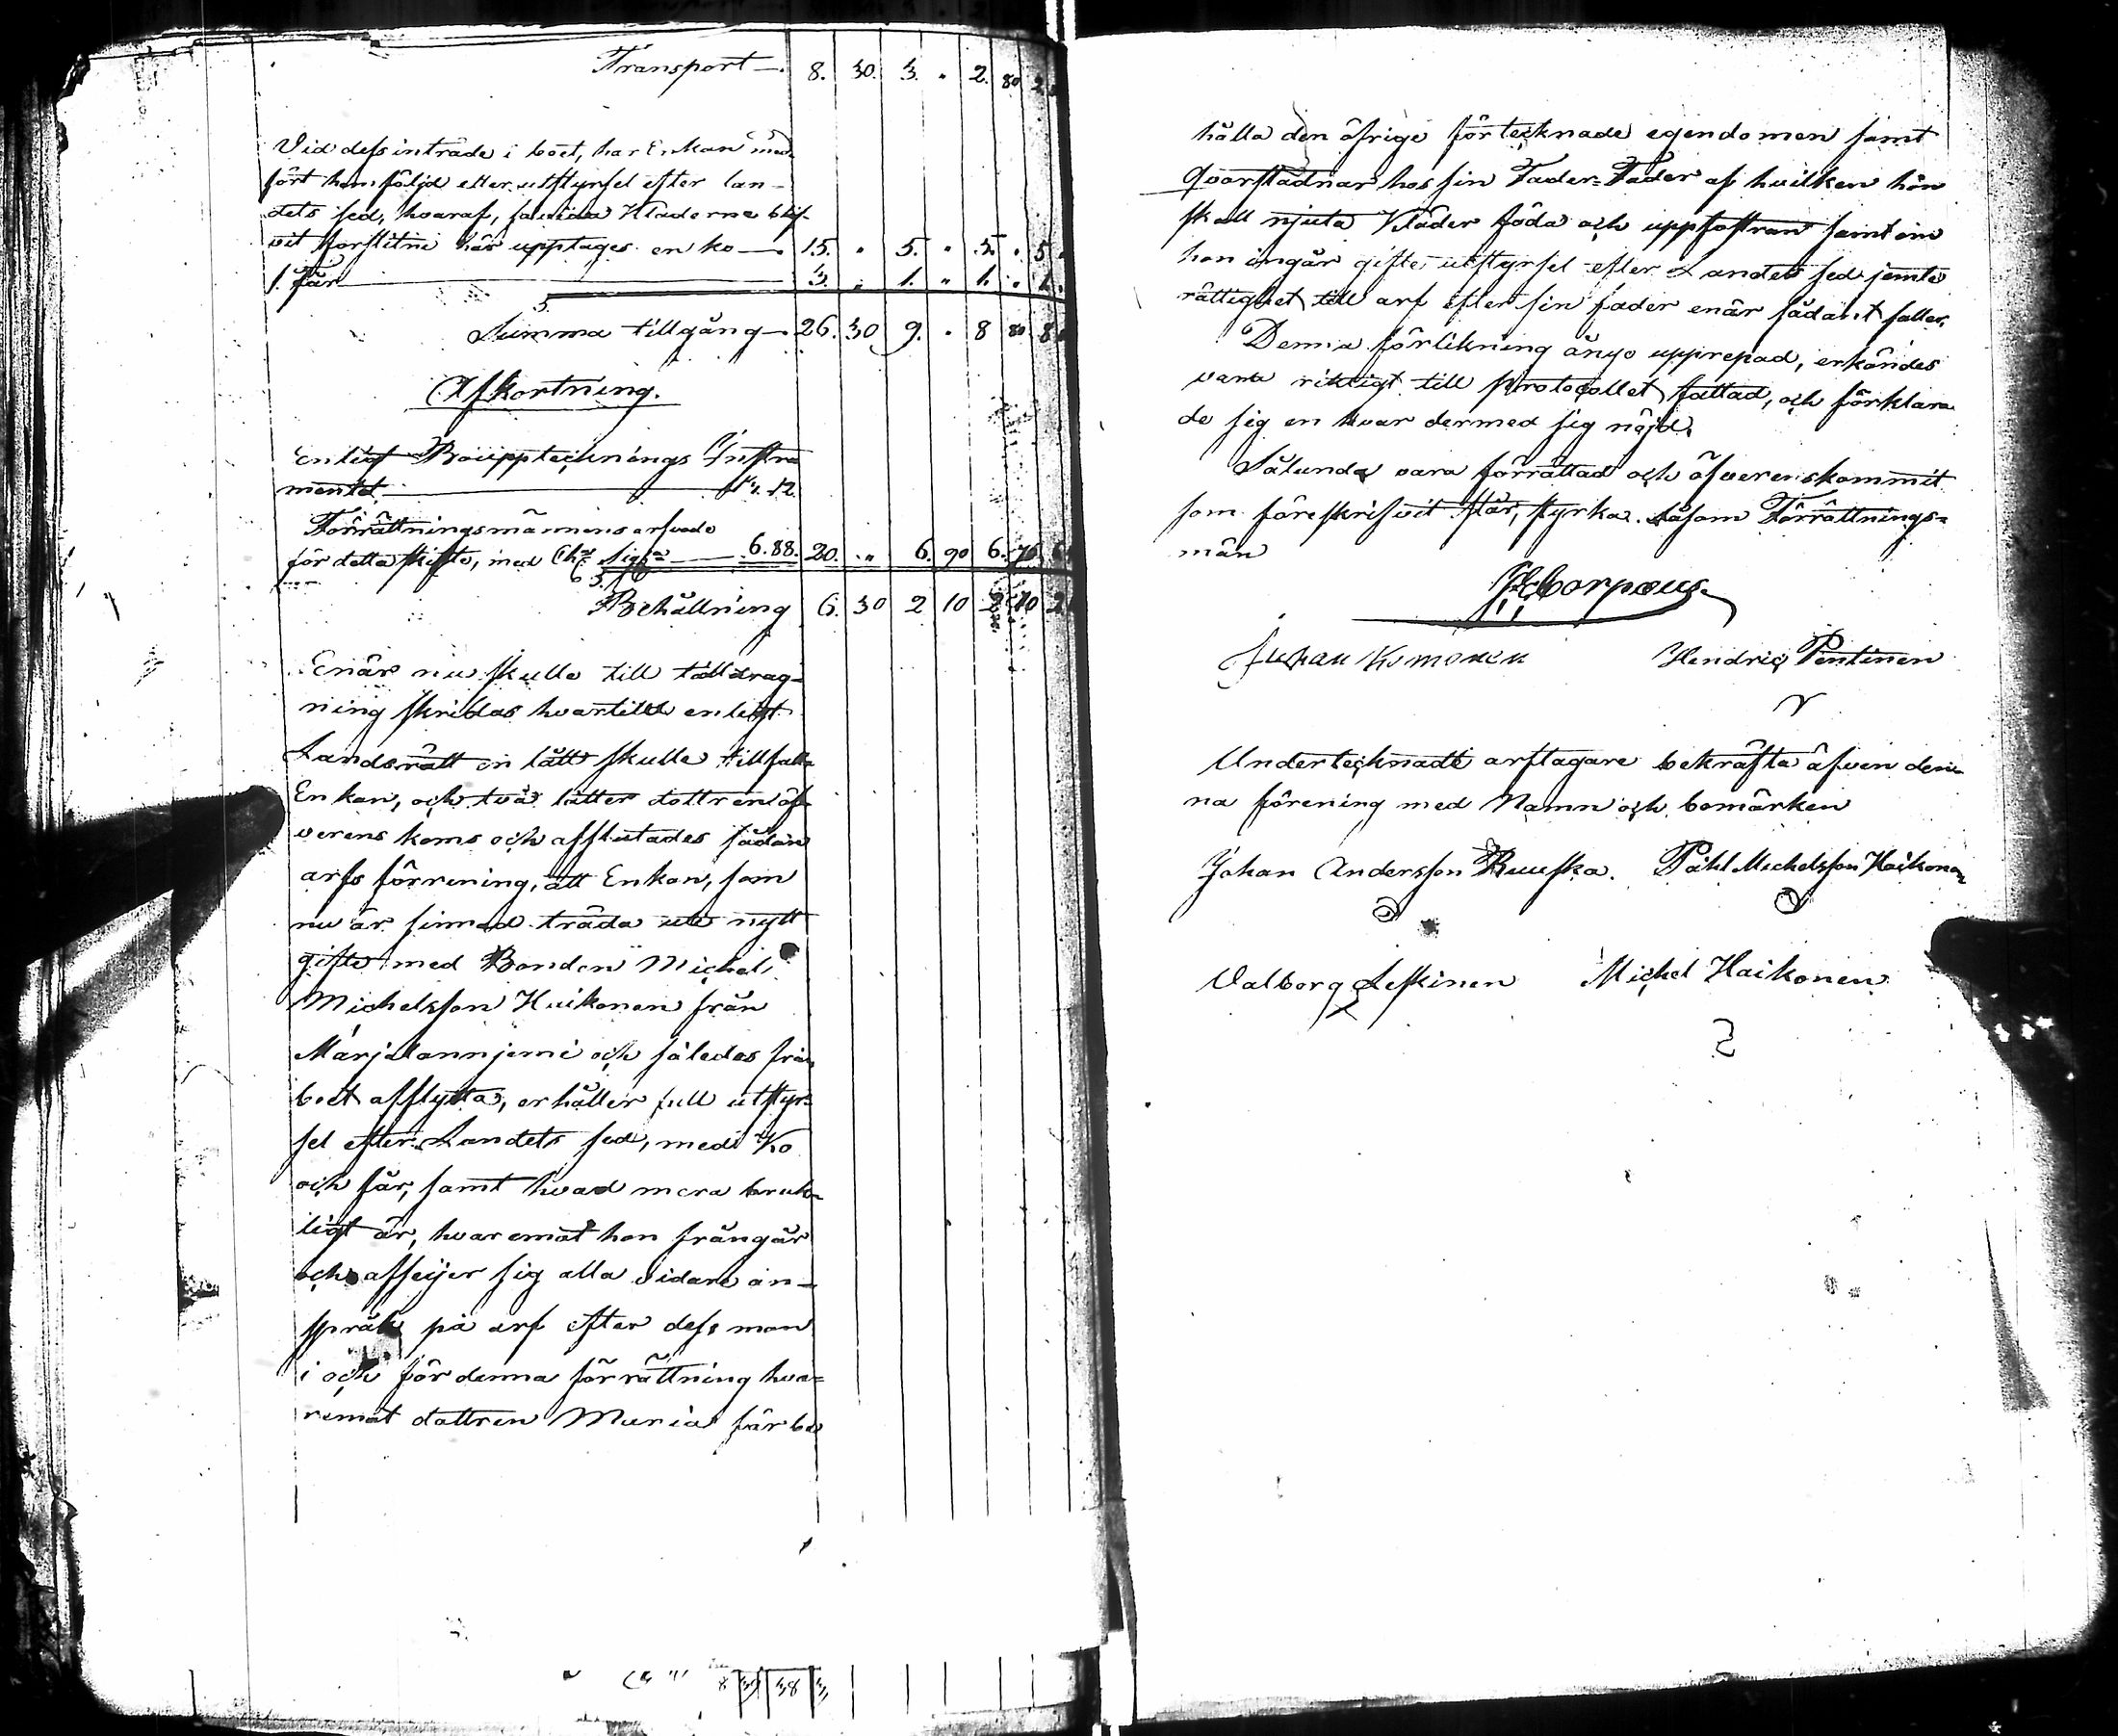 Transport — 8. 30. 3. " 2. 80 2
Vid dess inträde i boet, har Enkan med-
fört hemföljd eller utstyrsel efter lan-
dets sed, hvaraf, sawida Kläderne blif-
vit förslitne här upptages en ko — 15. " 5. " 5. " 5
1. får 3. " 1. " 1. " 1.
Summa tillgång — 26. 30 9. " 8 80 8
Afkortning.
Enligt Boupptecknings Instru
mentet 13. 12.
Förrättningsmännens arfvode
för detta skifte, med Ch: Sig: 6. 88. 20. " 6. 90 6. 70 6
Behållning 6. 30 2 10 2 10 2
Enär nu skulle till tilldrag-
ning skridas hvartill enligt
Landsrätt en lått skulle tillfalla
Enkan, och två låtter dottren öf-
verens koms och afslutades sådan
arfs förrening, att Enkan, som
nu är sinnad träda uti nytt
gifte med Bonden Michel
Michelsson Haikonen från
Marjalanniemi och således från
boet afflytta, erhåller full utstyr-
sel efter Landets sed, med Ko
och får, samt hvad mera bruk-
ligt är, hvaremot hon frångår
och afseijer sig alla vidare an-
språk på arf efter dess man
i och för denna förrättning hva-
remot dottren Maria får be
hålla den öfrige förtecknade egendomen samt
qvarstadnar hos sin Fader-Fader af hvilken hon
skall njuta Kläder föda och uppfostran samt om
hon ingår gifte utstyrsel efter Landets sed jemte
rättighet till arf efter sin fader enär sådant faller.
Denna förlikning ånyo upprepad, erkändes
vara riktigt till protocollet fattad, och förklara
de sig en hvar dermed sig nöjd.
Sålunda vara förrättad och öfverenskommit
som föreskrifvit står, styrka. såsom Förrättnings-
män
Corpoeus
Juhan Komonen Hendric Pentinen
Undertecknade arftagare bekräfta äfven den-
na förening med Namn och bomärken
Johan Andersson Ruuska. Påhl Michelsson Haikonen
Valborg Leskinen Michel Haikonen